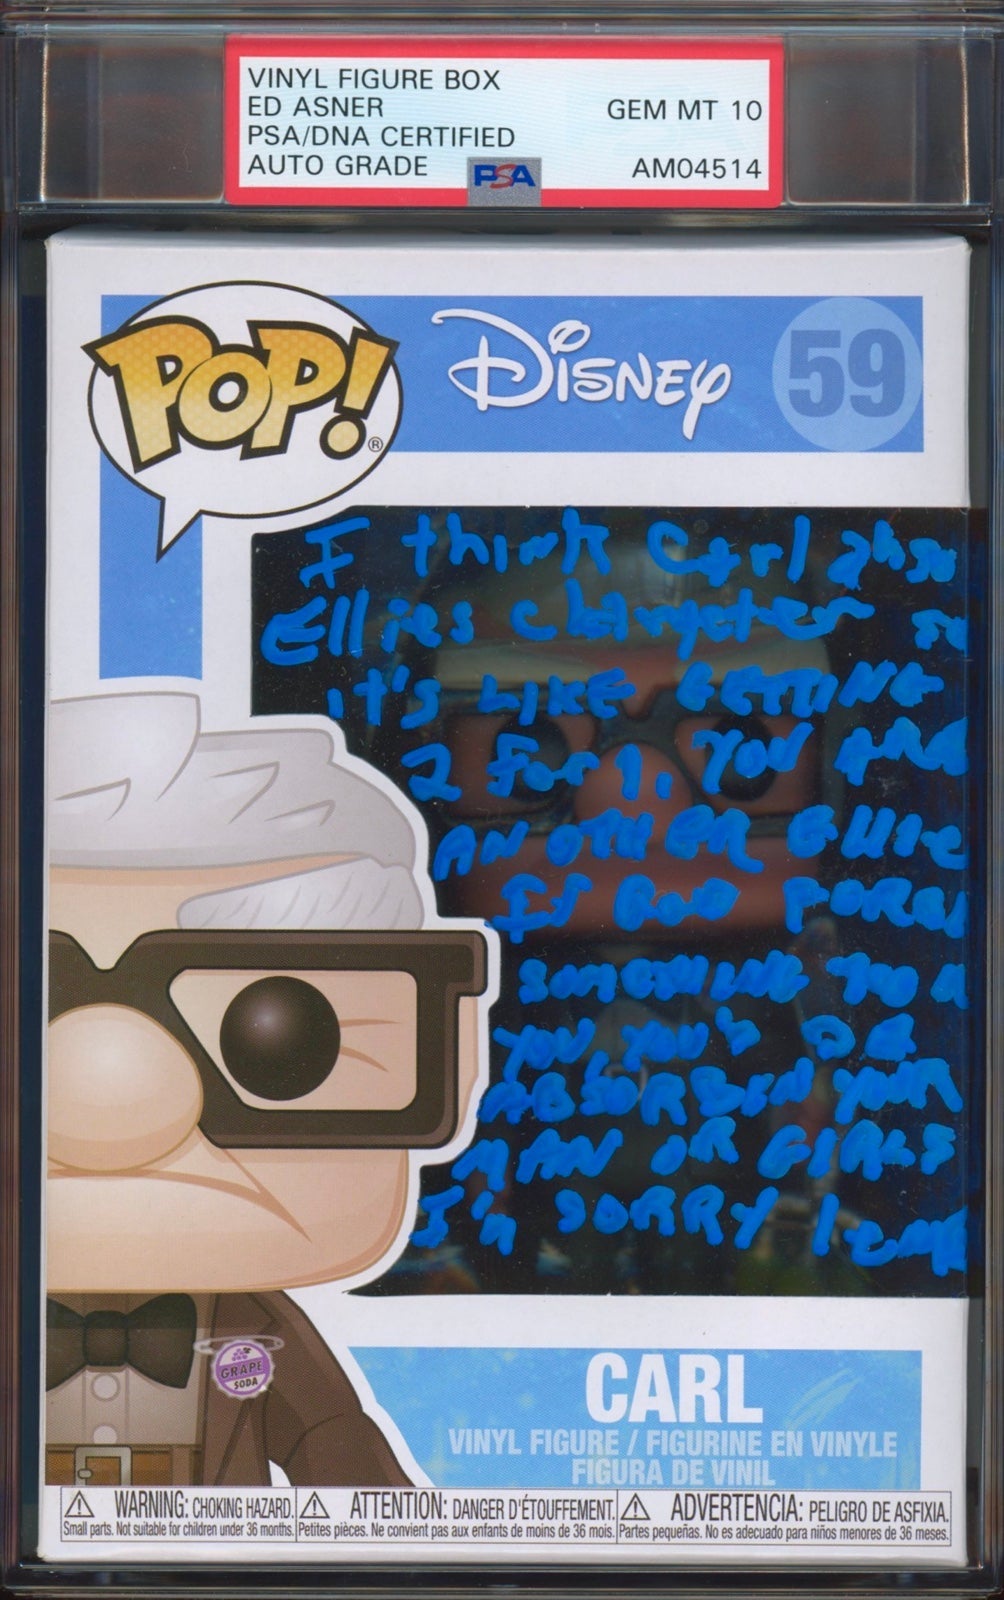 VINYL FIGURE BOX
ED ASNER GEM MT 10
PSA/DNA CERTIFIED
AUTO GRADE PSA AM04514
POP! ® Disney 59
I think Carl
Ellies character so
it's LIKE GETTING
2 for 1. YOU ARE
ANOTHER Ellie
If GOD
SOMETHING TO
YOU, YOU'D
YOUR
MAN OR GIRLS
I'm SORRY
GRAPE
SODA
CARL
VINYL FIGURE / FIGURINE EN VINYLE
FIGURA DE VINIL
⚠ WARNING: CHOKING HAZARD.
Small parts. Not suitable for children under 36 months.
⚠ ATTENTION: DANGER D'ÉTOUFFEMENT.
Petites pièces. Ne convient pas aux enfants de moins de 36 mois.
⚠ ADVERTENCIA: PELIGRO DE ASFIXIA.
Partes pequeñas. No es adecuado para niños menores de 36 meses.